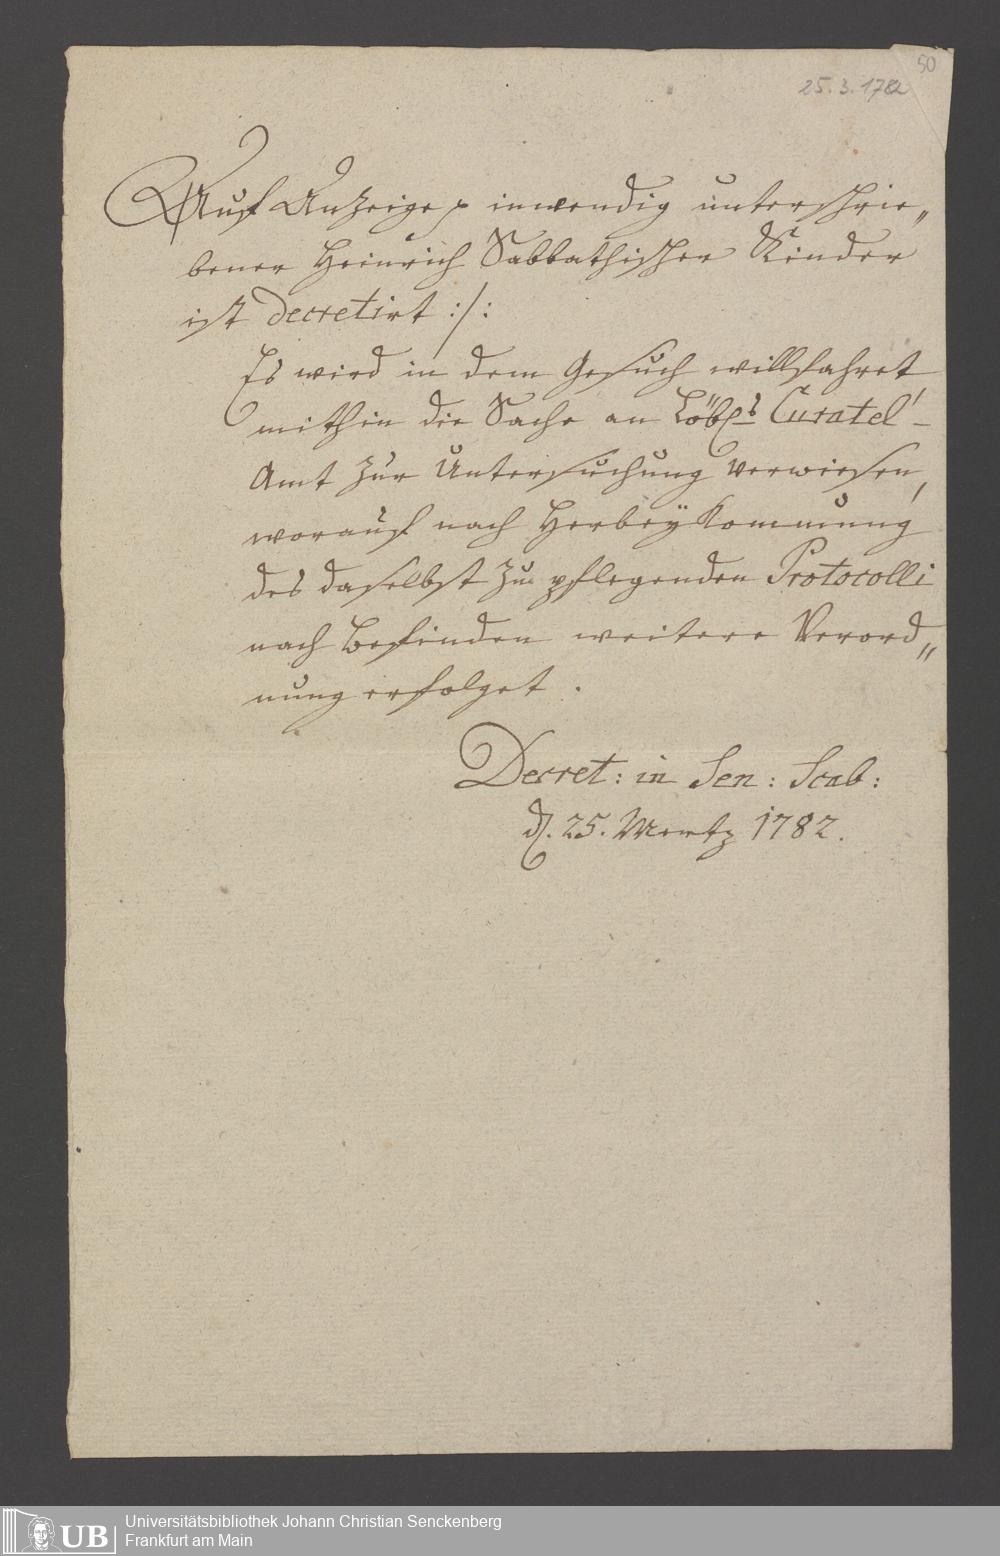 50
25.3.1782
Auf Anzeige p inwendig unterschrie„
bener Heinrich Sabbathischer Kinder
ist decretirt :/:
Es wird in dem Gesuch willfahret
mithin die Sache an Löbls Curatel-
Amt zur Untersuchung verwiesen,
worauf nach Herbeÿkommung
des daselbst zu pflegenden Protocolli
nach Befinden weitere Verord„
nung erfolget.
Decret: in Sen: Scab:
d. 25. Mertz 1782.
UB Universitätsbibliothek Johann Christian Senckenberg
Frankfurt am Main